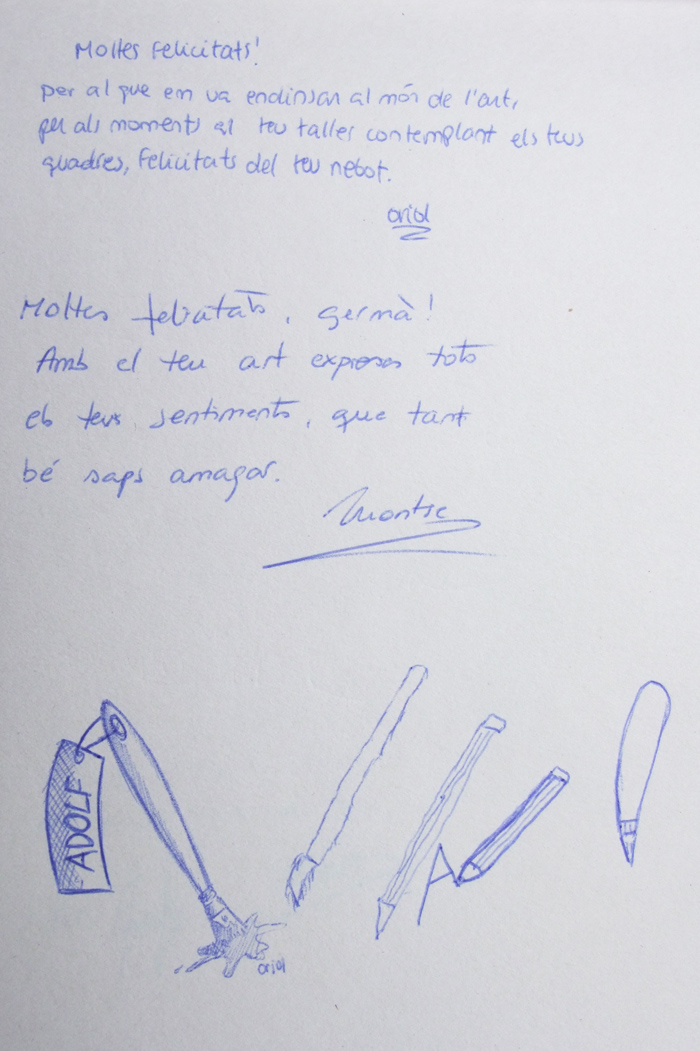 Moltes felicitats!
per al que em va endinsar al món de l'art,
per als moments al teu taller contemplant els teus
quadres, Felicitats del teu nebot.
oriol
Moltes felicitats, germà!
Amb el teu art expreses tots
els teus sentiments, que tant
bé saps amagar.
Montse
ADOLF
A
oriol